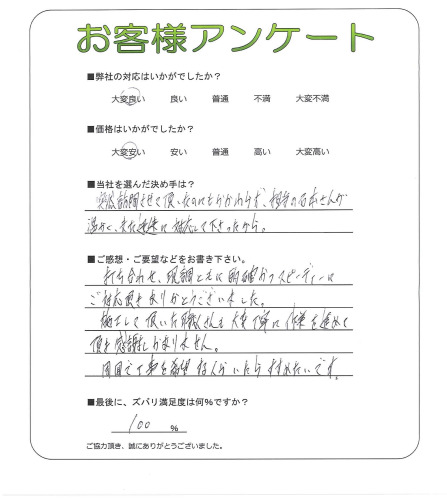 お客様アンケート
■弊社の対応はいかがでしたか?
大変良い 良い 普通 不満 大変不満
■価格はいかがでしたか?
大変安い 安い 普通 高い 大変高い
■当社を選んだ決め手は?
突然訪問させて頂いたのにもかかわらず、担当の石本さんが
温かく、また迅速に対応して下さったから。
■ご感想・ご要望などをお書き下さい。
打ち合わせ、現調ともに明確かつスピーディーに
ご対応頂きありがとうございました。
施工して頂いた職人さんも大変丁寧に作業を進めて
頂き感謝しかありません。
周囲で工事を希望する人がいたらすすめたいです。
■最後に、ズバリ満足度は何%ですか?
100 %
ご協力頂き、誠にありがとうございました。